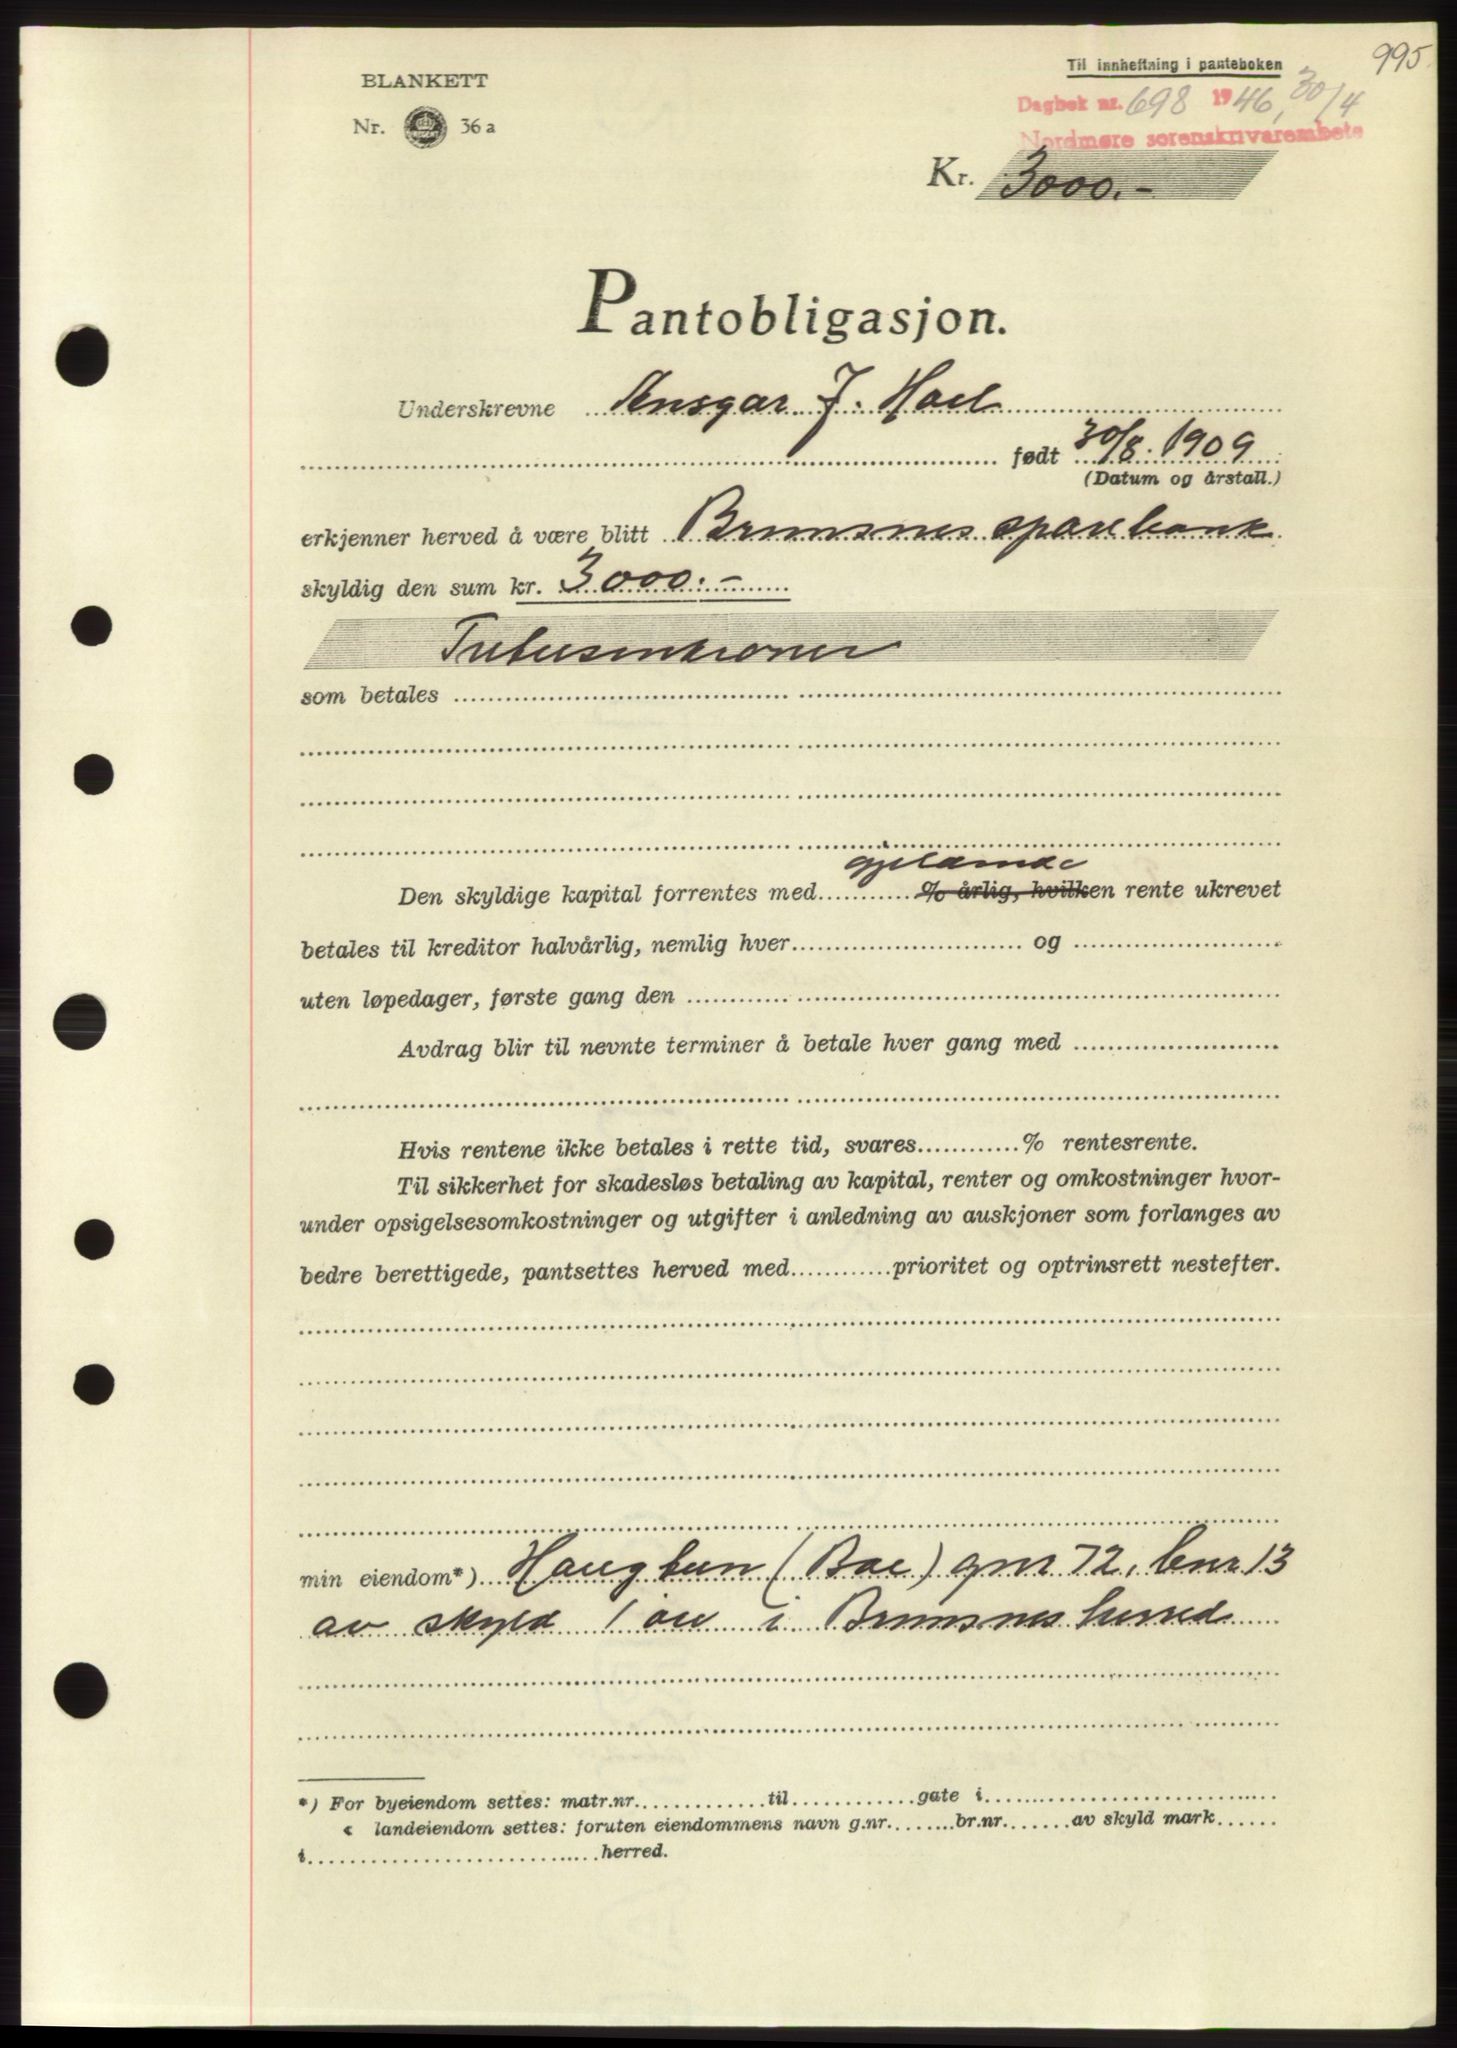 995.
Til innheftning i panteboken
BLANKETT
Dagbok nr. 698 1946, 30/4
Nr. 36 a
Nordmøre sorenskrivarembete
Kr. 3000.-
Pantobligasjon.
Underskrevne Ansgar J. Hoel
født 30/8. 1909
(Datum og årstall.)
erkjenner herved å være blitt Bremsnes sparebank
skyldig den sum kr. 3000.-
Tretusenkroner
som betales
gjeldende
Den skyldige kapital forrentes med % årlig, hvilken rente ukrevet
betales til kreditor halvårlig, nemlig hver og
uten løpedager, første gang den
Avdrag blir til nevnte terminer å betale hver gang med
Hvis rentene ikke betales i rette tid, svares % rentesrente.
Til sikkerhet for skadesløs betaling av kapital, renter og omkostninger hvor-
under opsigelsesomkostninger og utgifter i anledning av auskjoner som forlanges av
bedre berettigede, pantsettes herved med prioritet og optrinsrett nestefter.
min eiendom*) Haugtun (Bae) gnr 72, bnr 13
av skyld 1 øre i Bremsnes herred
*) For byeiendom settes: matr.nr. til gate i
« landeiendom settes: foruten eiendommens navn g.nr. br.nr. av skyld mark
i herred.